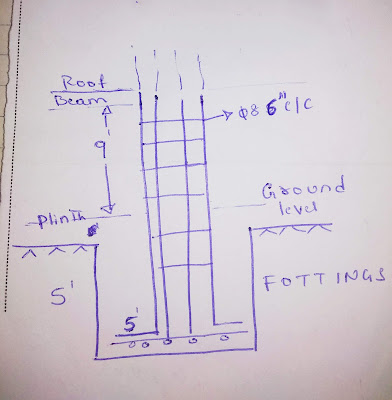 Roof
Beam
φ8 6" c/c
9'
Ground
level
Plinth
5'
FOTTINGS
5'